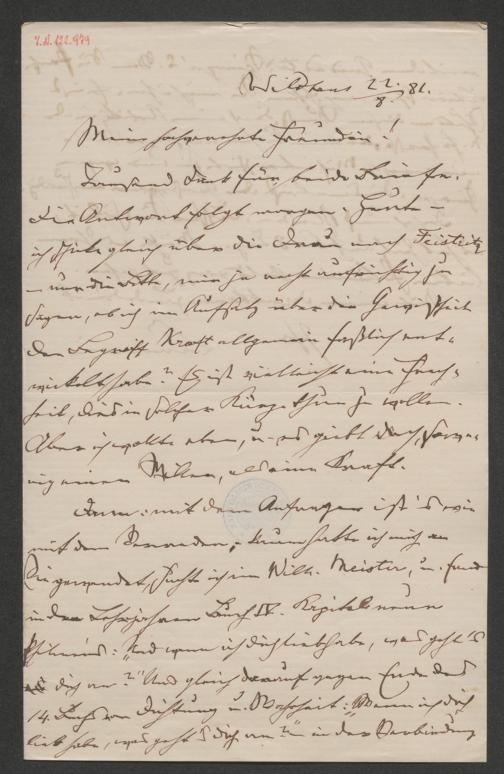 I.N. 122.979
Wildhaus 22./8. 81.
Meine hochverehrte Freundin!
Tausend Dank für beide Briefe.
Die Antwort folgt morgen. Heute –
ich gleich über die Drau nach Feistritz
– nur die Bitte, mir ja recht aufrichtig zu
sagen, ob ich im Aufsatz über die Gewißheit
den Begriff Kraft allgemein faßlich ent-
wickelt habe? Es ist vielleicht eine Frech-
heit, dies in solcher Kürze thun zu wollen.
Aber ich wollte eben, u. es giebt doch
einen Willen, als eine Kraft.
Dann: mit dem Anfragen ist's wie
mit dem ; kaum hatte ich mich an
Sie gewendet, suchte ich im Wilh. Meister, u. fand
in den Lehrjahren Buch IV. Kapitel neun
Philine's: "Und wenn ich dich lieb habe, was geht's
dich an?" Und gleich darauf gegen Ende des
14. Buchs von Dichtung u. Wahrheit: "Wenn ich dich
lieb habe, was geht's dich an?" in der Verbindung